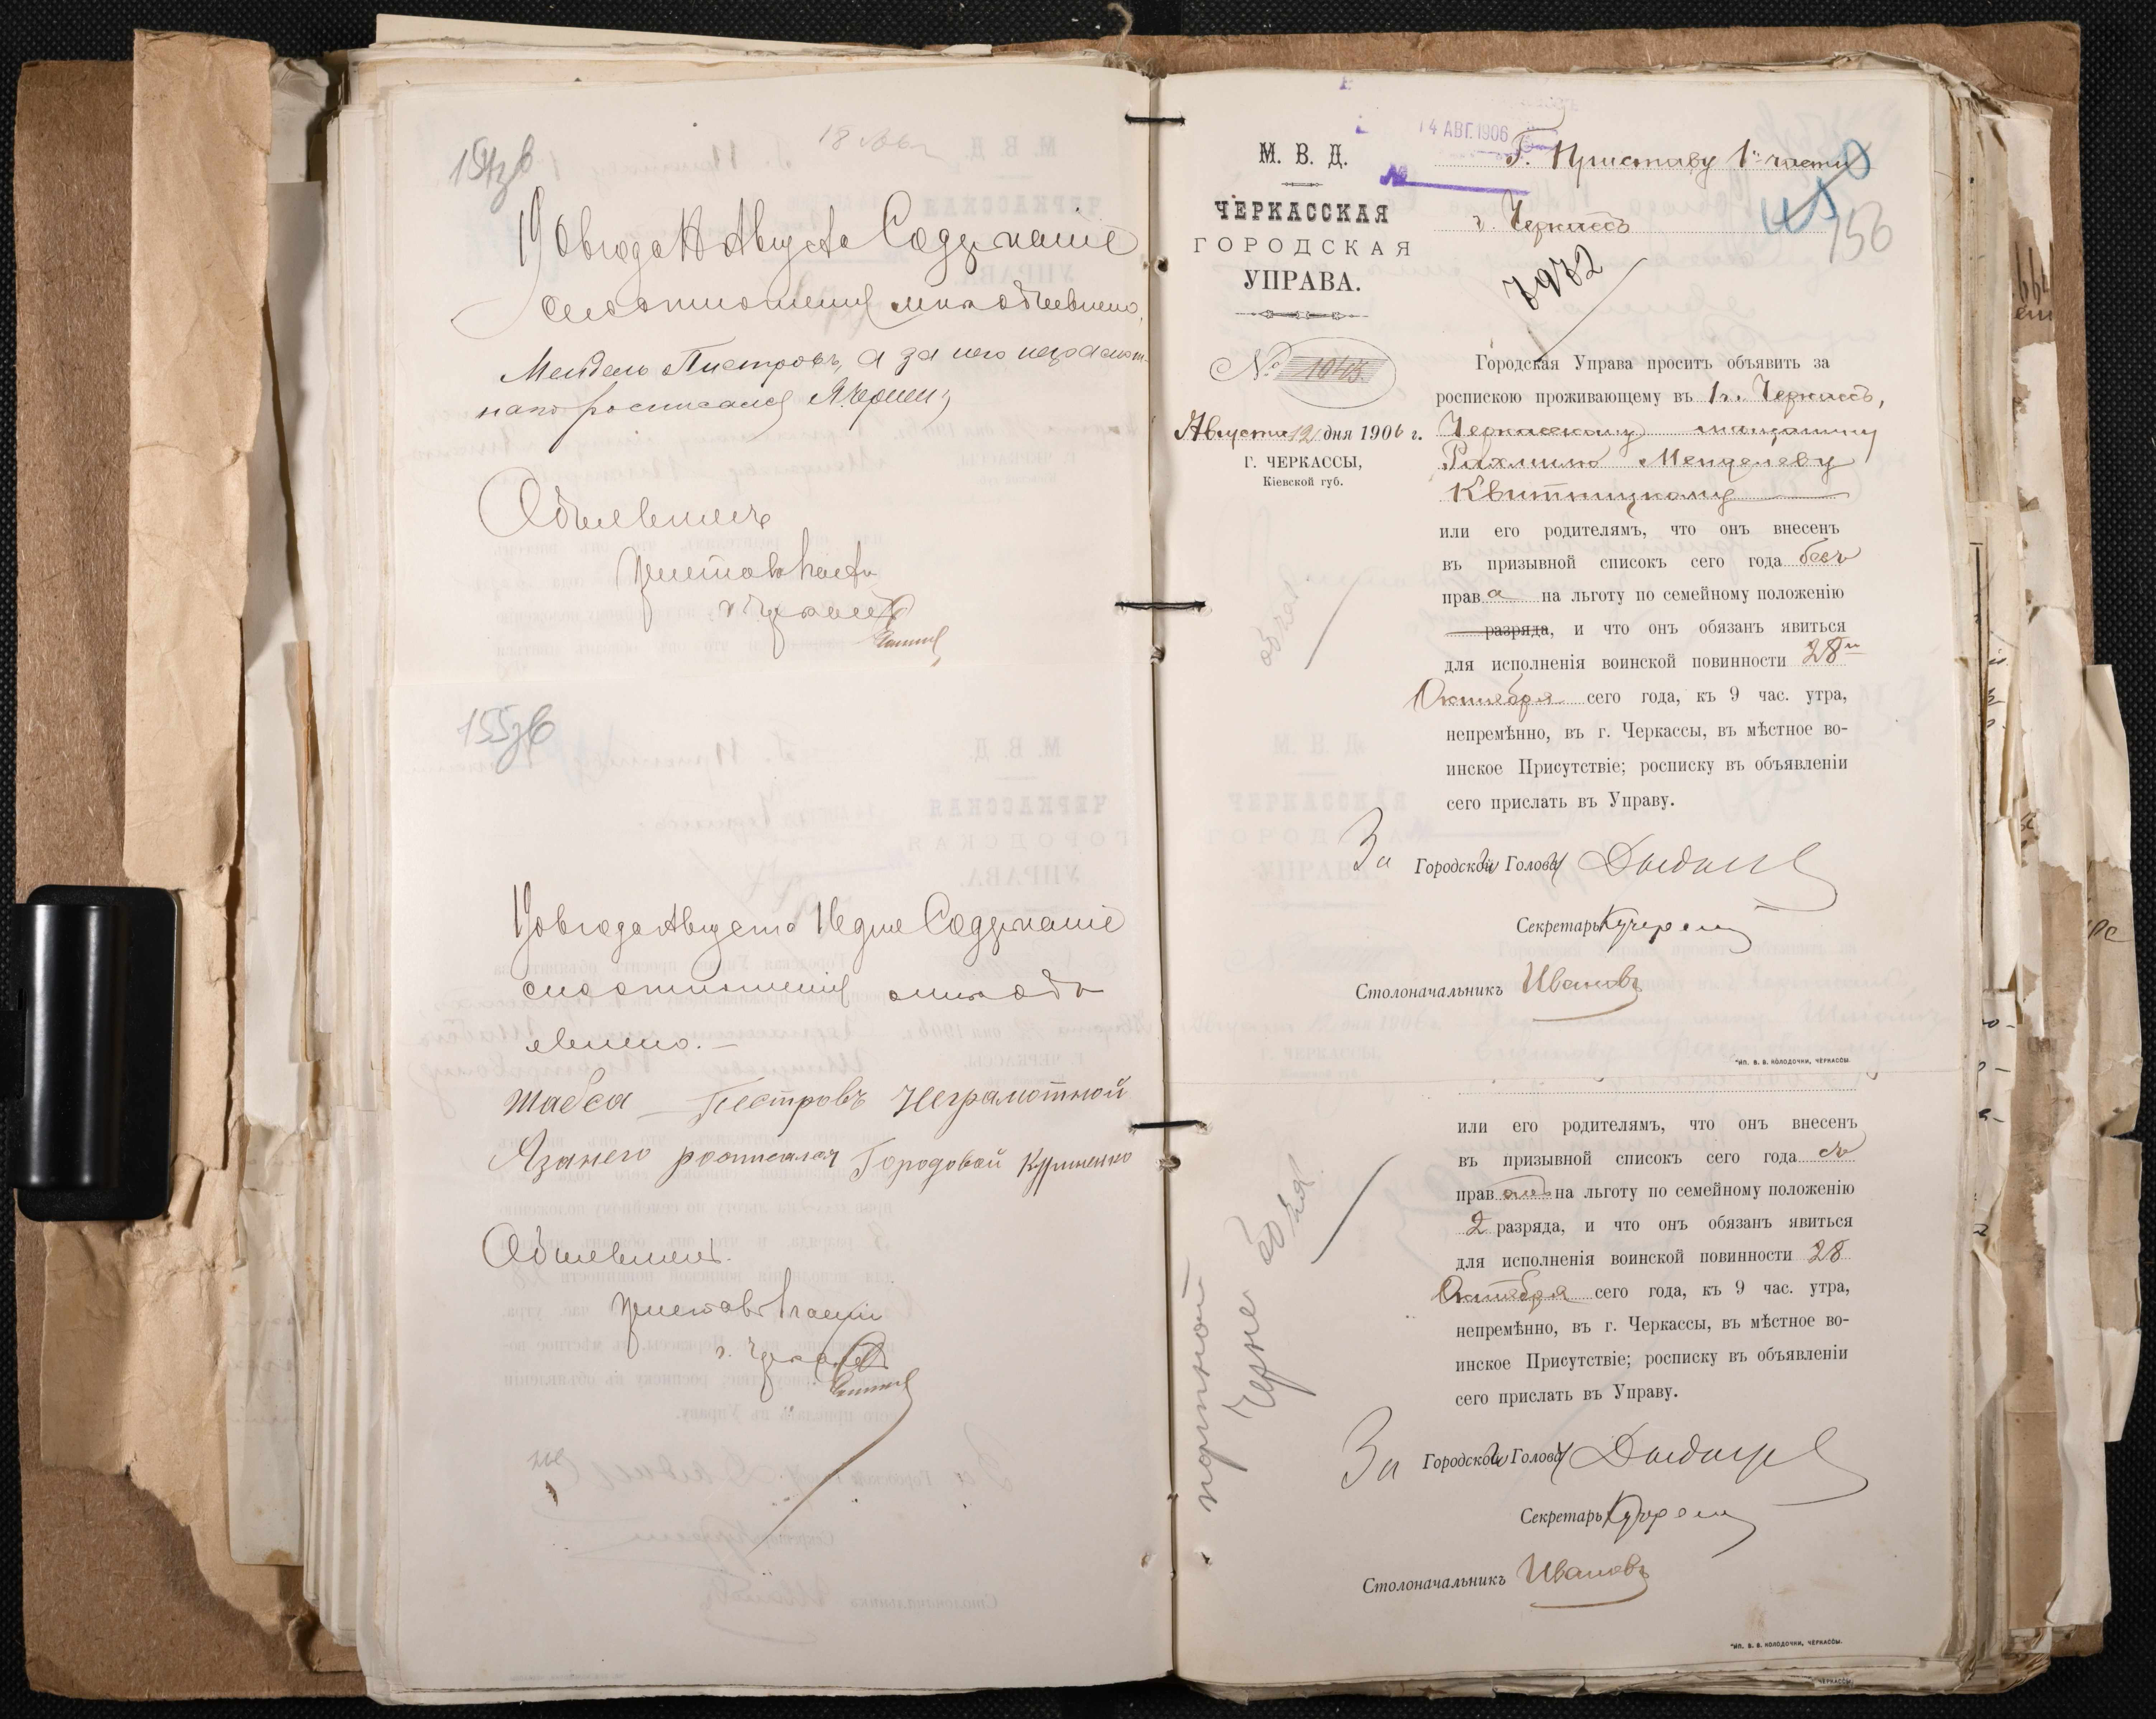 154зв
1906 года 18 Августа Содержаніе
сего отношенія мнѣ объявлено,
Мендель Пистровъ, а за него неграмот-
наго росписался
Объявилъ
Приставъ 1 части
г. Черкассъ
155зв
1906 года Августа 18 дня Содержаніе
сего отношенія мнѣ объ
явлено.—
Шабса Пестровъ Неграмотной
А за него росписался Городовой Куриненко
Объявилъ.
Приставъ 1 части
г. Черкассъ
14 АВГ. 1906
№
М. В. Д.
ЧЕРКАССКАЯ
ГОРОДСКАЯ
УПРАВА.
№ 10445
Августа 12 дня 1906 г.
Г. ЧЕРКАССЫ,
Кіевской губ.
Г. Приставу 1й части
г. Черкассъ
156
7972
Городская Управа проситъ объявить за
роспискою проживающему въ г. Черкассъ,
Черкасскому мѣщанину
Рахмилю Менделеву
Квитницкому
или его родителямъ, что онъ внесенъ
въ призывной списокъ сего года безъ
права на льготу по семейному положенію
разряда, и что онъ обязанъ явиться
для исполненія воинской повинности 28го
Октября сего года, къ 9 час. утра,
непремѣнно, въ г. Черкассы, въ мѣстное во-
инское Присутствіе; росписку въ объявленіи
сего прислать въ Управу.
За Городского Голову
Секретарь
Столоначальникъ Ивановъ
Тип. В. В. КОЛОДОЧКИ, ЧЕРКАССЫ.
или его родителямъ, что онъ внесенъ
въ призывной списокъ сего года съ
правомъ на льготу по семейному положенію
2 разряда, и что онъ обязанъ явиться
для исполненія воинской повинности 28
Октября сего года, къ 9 час. утра,
непремѣнно, въ г. Черкассы, въ мѣстное во-
инское Присутствіе; росписку въ объявленіи
сего прислать въ Управу.
За Городского Голову
Секретарь
Столоначальникъ Ивановъ
Тип. В. В. КОЛОДОЧКИ, ЧЕРКАССЫ.
портной